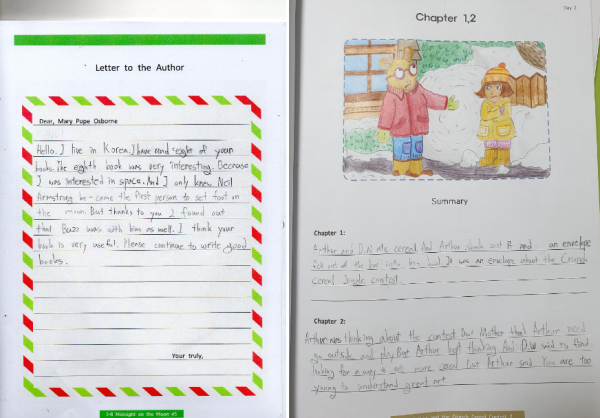 Letter to the Author
Dear, Mary Pope Osborne
Hello. I live in Korea. I have read eight of your
books. The eighth book was very interesting. Because
I was interested in space. And I only knew Neil
Armstrong be-came the first person to set foot on
the moon. But thanks to you I found out
that Buzz was with him as well. I think your
book is very useful. Please continue to write good
books.
Your truly,
1-8 Midnight on the Moon #5
Day 2
Chapter 1,2
Summary
Chapter 1:
Arthur and D.W. ate cereal. And Arthur and an envelope
fell out of the box into his bowl. It was an envelope about the Crunch
cereal Jingle contest.
Chapter 2:
Arthur was thinking about the contest. But Mother that Arthur need
go outside and play. But Arthur kept thinking. And D.W. said to find
looking for a way to get more cereal but Arthur said You are too
young to understand great art.
and the Crunch Cereal Contest